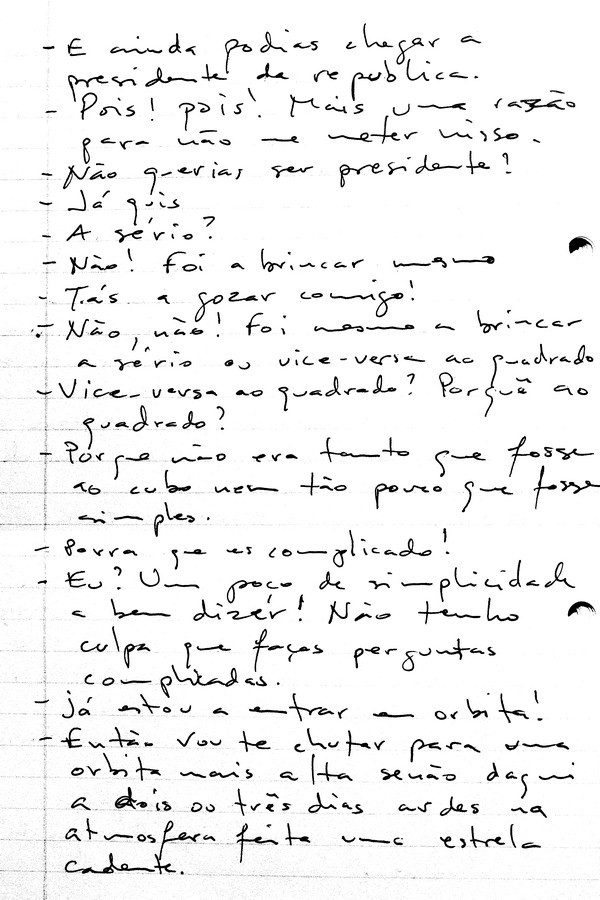 - E ainda podias chegar a
presidente da republica.
- Pois! pois! Mais uma razão
para não me meter nisso.
- Não querias ser presidente?
- Já quis
- A sério?
- Não! Foi a brincar mesmo
- Tás a gozar comigo!
- Não, não! Foi mesmo a brincar
a sério ou vice-versa ao quadrado
- Vice-versa ao quadrado? Porquê ao
quadrado?
- Porque não era tanto que fosse
ao cubo nem tão pouco que fosse
simples.
- Porra que es complicado!
- Eu? Um poço de simplicidade
a bem dizer! Não tenho
culpa que faças perguntas
complicadas.
- já estou a entrar em orbita!
- Então vou te chutar para uma
orbita mais alta senão daqui
a dois ou três dias ardes na
atmosfera feita uma estrela
cadente.